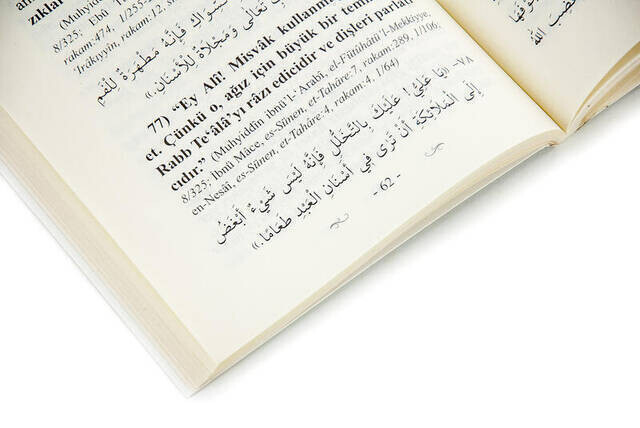 zıklar
8/325; Ebû
rakam:474, 1/255-
‘Irâkıyyîn, rakam:12,
تَعَالَى وَمَجْلَاةٌ لِلْأَسْنَانِ.»
فَإِنَّهُ مَطْهَرَةٌ لِلْفَمِ
77) “Ey Ali! Misvâk kullanma
et. Çünkü o, ağız için büyük bir temi
Rabb Te‘âlâ’yı râzı edicidir ve dişleri parla
cıdır.” (Muhyiddîn ibnü’l-‘Arabî, el-Fütûhâtü’l-Mekkiyye,
8/325; İbnü Mâce, es-Sünen, et-Tahâre:7, rakam:289, 1/106;
en-Nesâî, es-Sünen, et-Tahâre:4, rakam:4, 1/64)
٧٨- «يَا عَلِيُّ! عَلَيْكَ بِالتَّخَلُّلِ فَإِنَّهُ لَيْسَ شَيْءٌ أَبْغَضُ
إِلَى الْمَلَائِكَةِ أَنْ تَرَى فِي أَسْنَانِ الْعَبْدِ طَعَامًا.»
- 62 -
الله